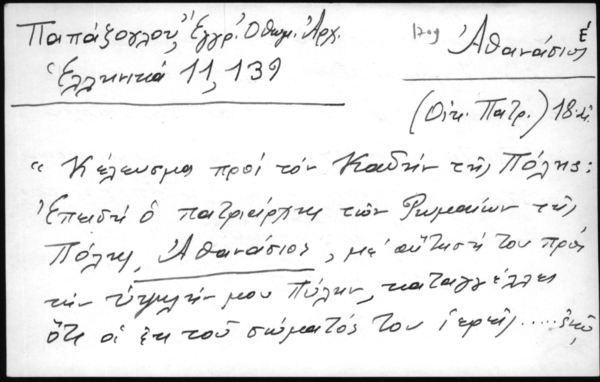 Παπάζογλου, Ἐγγρ. Ὀθωμ. Ἀρχ.
Ἑλληνικά 11, 139
1709 Ἀθανάσιος Έ
(Οἰκ. Πατρ.) 18 αἰ.
"Κέλευσμα πρός τόν Καδῆν τῆς Πόλης:
Ἐπειδή ὁ πατριάρχης τῶν Ρωμαίων τῆς
Πόλης, Ἀθανάσιος, μέ αἴτησή του πρός
τήν ὑψηλήν μου Πύλην, καταγγέλλει
ὅτι οἱ ἐκ τοῦ σώματός του ἱερεῖς.....